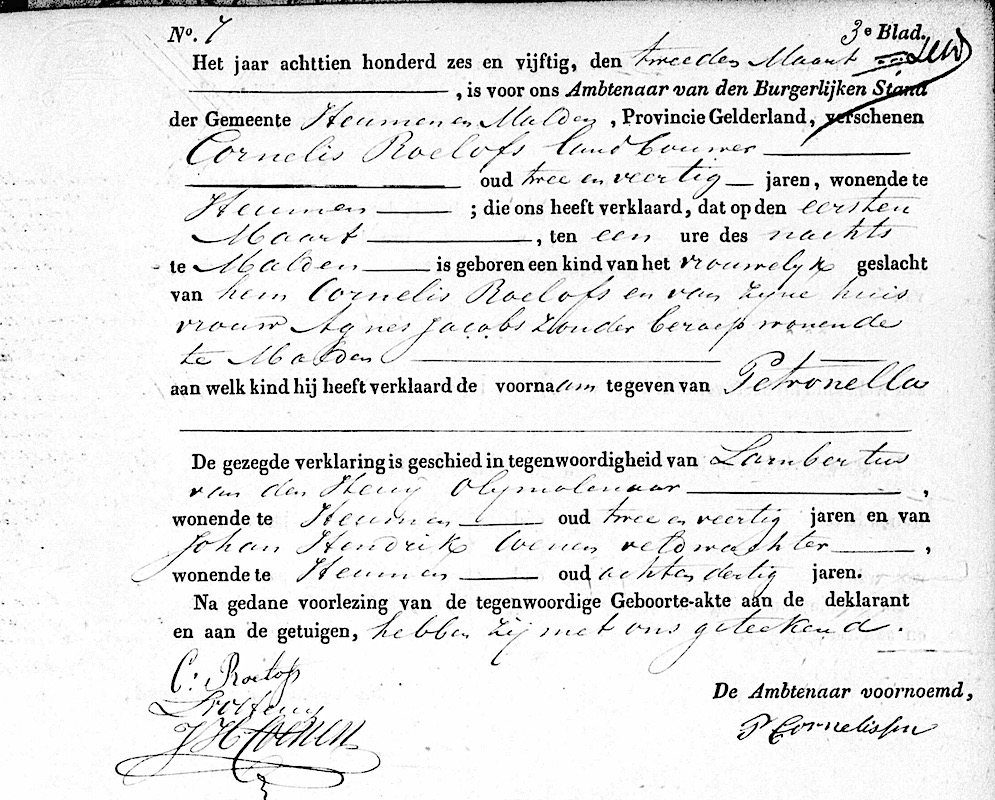 No. 7 3e Blad.
Het jaar achttien honderd zes en vijftig, den tweeden Maart
, is voor ons Ambtenaar van den Burgerlijken Stand
der Gemeente Heumen en Malden, Provincie Gelderland, verschenen
Cornelis Roelofs landbouwer
oud twee en veertig jaren, wonende te
Heumen ; die ons heeft verklaard, dat op den eersten
Maart , ten een ure des nachts
te Malden is geboren een kind van het vrouwelyk geslacht
van hem Cornelis Roelofs en van zyne huis
vrouw Agnes Jacobs zonder beroep wonende
te Malden
aan welk kind hij heeft verklaard de voornaam te geven van Petronella
De gezegde verklaring is geschied in tegenwoordigheid van Lambertus
van den Heuy Olymolenaar ,
wonende te Heumen oud twee en veertig jaren en van
Johan Hendrik Coenen veldwachter ,
wonende te Heumen oud acht en dertig jaren.
Na gedane voorlezing van de tegenwoordige Geboorte-akte aan de deklarant
en aan de getuigen, hebben zij met ons geteekend.
C: Roelofs
De Ambtenaar voornoemd,
J H Coenen
P Cornelissen